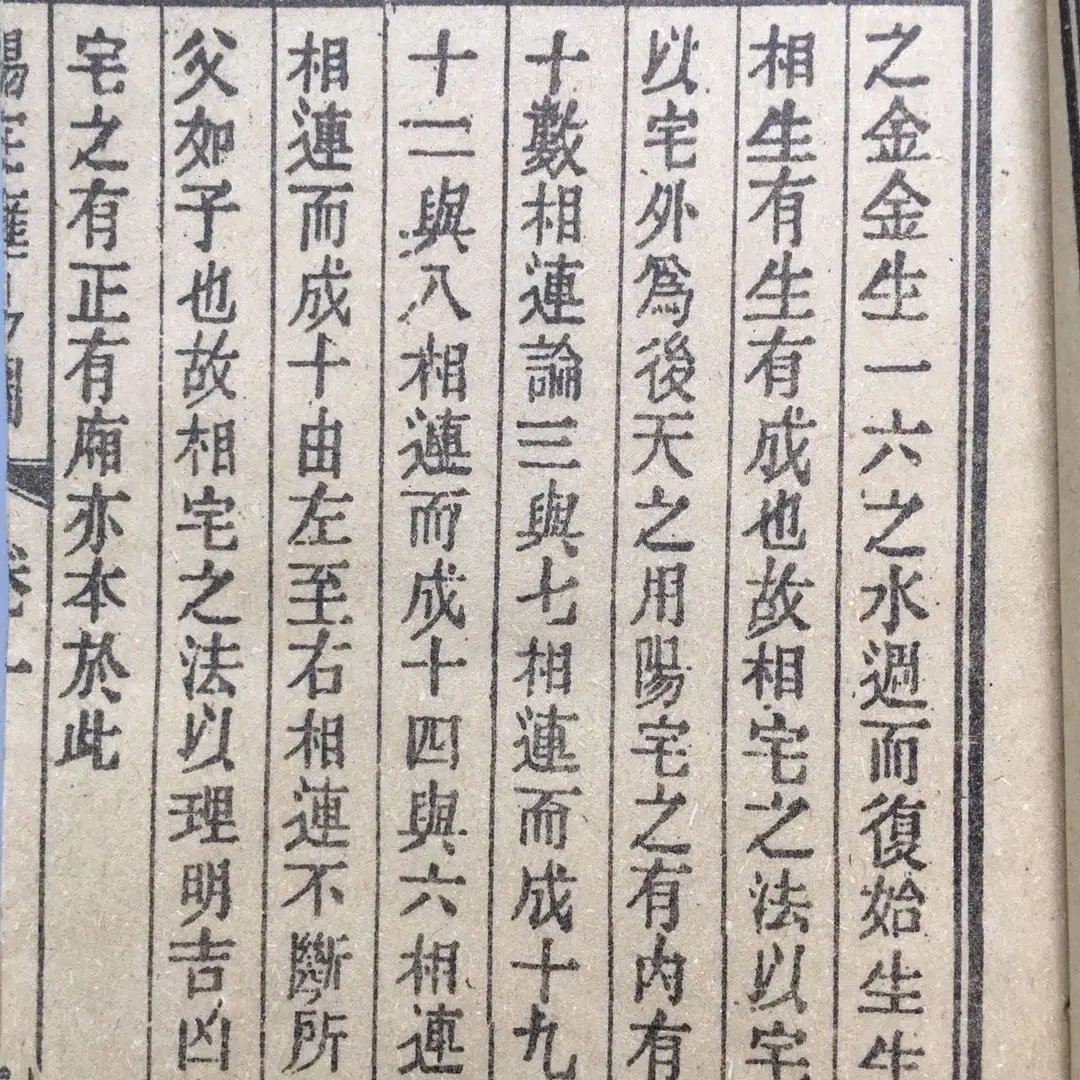 之金金生一六之水週而復始生生
相生有生有成也故相宅之法以宅
以宅外爲後天之用陽宅之有内有
十數相連論三與七相連而成十九
十二與八相連而成十四與六相連
相連而成十由左至右相連不斷所
父如子也故相宅之法以理明吉凶
宅之有正有廂亦本於此
卷一